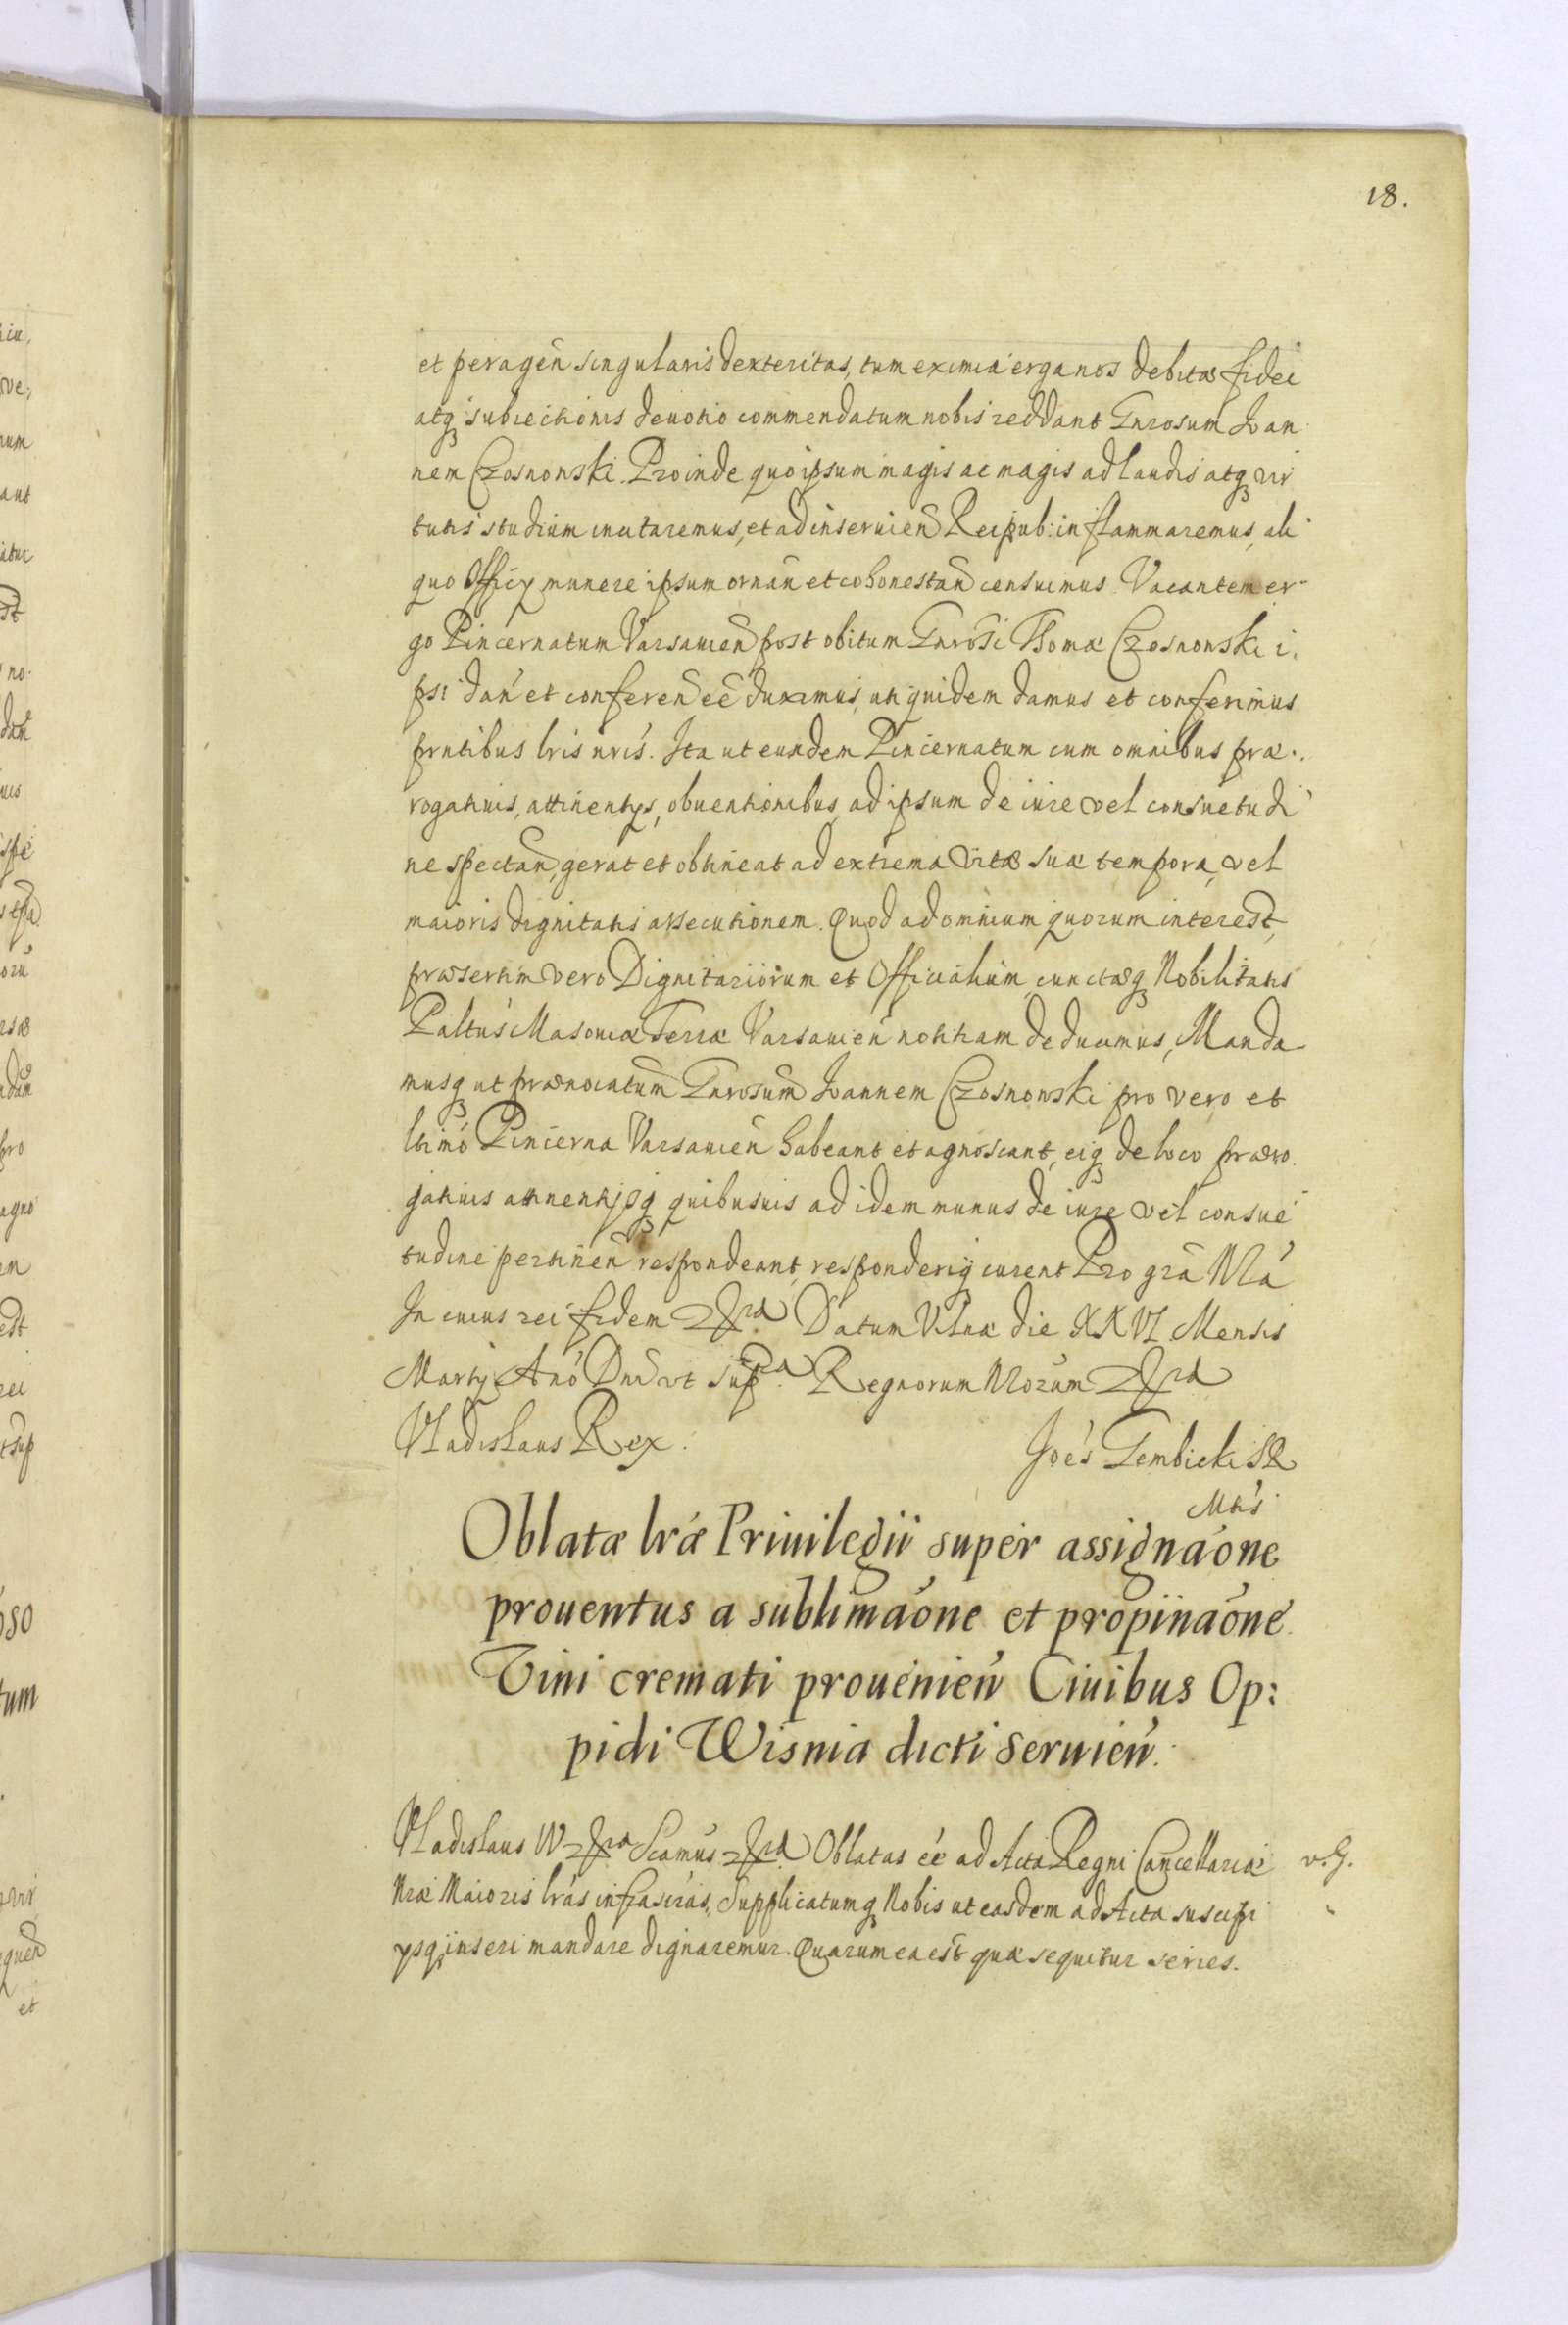 18.
et peragen̄ singularis dexteritas, tum eximia erga nos debitæ fidei
atq̢ subiectionis deuotio commendatum nobis reddant Gnrosum Joan
nem Czosnowski. Proinde quo ipsum magis ac magis ad laudis atq̢ vir
tutis studium incitaremus, et ad inseruien̄ Reipub: inflammaremus, ali
quo Officy munere ipsum ornan̄ et cohonestan̄ censuimus. Vacantem er-
go Pincernatum Varsauien̄ post obitum Gnrosi Thomæ Czosnowski i.
psi dan̄ et conferen̄ eē duximus, uti quidem damus et conferimus
prntibus lris nris. Ita ut eundem Pincernatum cum omnibus præ.
rogatiuis, attinentys, obuentionibus, ad ipsum de iure vel consuetudi
ne spectan̄, gerat et obtineat ad extrema vitæ suæ tempora, vel
maioris dignitatis assecutionem. Quod ad omnium quorum interest,
præsertim vero Dignitariorum et Officialium, cunctæq̢ Nobilitatis
Paltus Masouiæ Terræ Varsauien̄ notitiam deducimus, Manda-
musq̢ ut prænoiatum Gnrosum Joannem Czosnowski pro vero et
ltimo Pincerna Varsauien̄ habeant et agnoscant, eiq̢ de loco præro.
gatiuis attinentijsq̢ quibusuis ad idem munus de iure vel consue
tudine pertinen̄ respondeant, responderiq̢ curent Pro gra Nra
In cuius rei fidem &ra Datum Vilnæ die XXVI Mensis
Marty Ano Dni vt supra. Regnorum Nrorum &ra
Vladislaus Rex.
Joes Gembicki SR
Mtis
Oblatæ lræ Priuilegii super assignaone
prouentus a sublimaone et propinaone
Vini cremati prouenien̄ Ciuibus Op:
pidi Wisnia dicti seruien̄.
Vladislaus IV &ra Scamus &ra Oblatas eē ad Acta Regni Cancellariæ v. G.
Nræ Maioris lras infrascras, Supplicatumq̢ Nobis ut easdem ad Acta suscipi
ysq̢ inseri mandare dignaremur. Quarum ea est quæ sequitur series.